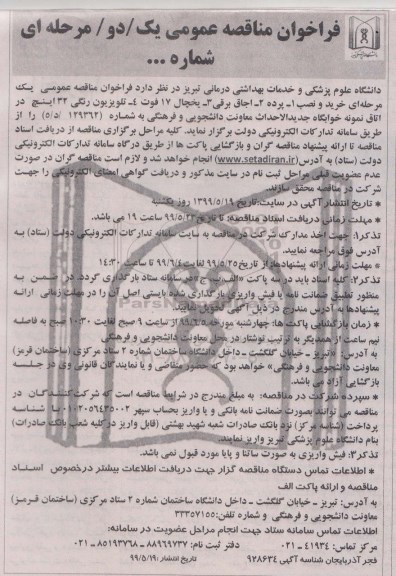 فراخوان مناقصه عمومی یک/دو/ مرحله ای
شماره ...
دانشگاه علوم پزشکی و خدمات بهداشتی درمانی تبریز در نظر دارد فراخوان مناقصه عمومی یک
مرحله‌ای خرید و نصب ۱- پرده ۲- اجاق برقی ۳- یخچال ۱۷ فوت ٤- تلویزیون رنگی ۳۲ اینچ در
اتاق نمونه خوابگاه جدیدالاحداث معاونت دانشجویی و فرهنگی به شماره (۵/د/ ۱۲۹۳۶۲) را از
طریق سامانه تدارکات الکترونیکی دولت برگزار نماید. کلیه مراحل برگزاری مناقصه از دریافت اسناد
مناقصه تا ارائه پیشنهاد مناقصه گران و بازگشایی پاکت ها از طریق درگاه سامانه تدارکات الکترونیکی
دولت (ستاد) به آدرس (www.setadiran.ir) انجام خواهد شد و لازم است مناقصه گران در صورت
عدم عضویت قبلی مراحل ثبت نام در سایت مذکور و دریافت گواهی امضای الکترونیکی را جهت
شرکت در مناقصه محقق سازند.
* تاریخ انتشار آگهی در سایت: تاریخ ۱۳۹۹/۵/۱۹ روز یکشنبه
* مهلت زمانی دریافت اسناد مناقصه: تا تاریخ ۹۹/۵/۲۳ ساعت ۱۹ می باشد.
تذکر۱: جهت اخذ مدارک شرکت در مناقصه به سایت سامانه تدارکات الکترونیکی دولت (ستاد) به
آدرس فوق مراجعه نمایید.
* مهلت زمانی ارائه پیشنهادها: از تاریخ ۹۹/۵/۲۵ لغایت ۹۹/٦/٤ تا ساعت ۱٤:۳۰
تذکر۲: کلیه اسناد باید در سه پاکت «الف،ب،ج» در سامانه ستاد بارگذاری گردد. در ضمن به
منظور تطبیق ضمانت نامه یا فیش واریزی بارگذاری شده بایستی اصل آن را در مهلت زمانی ارائه
پیشنهادها به آدرس مندرج در ذیل آگهی تحویل نمایید.
* زمان بازگشایی پاکت ها: چهارشنبه مورخه ۹۹/٦/۵ از ساعت ۹ صبح لغایت ۱۰:۳۰ صبح به فاصله
نیم ساعت از همدیگر به ترتیب نوشتار در محل معاونت دانشجویی و فرهنگی
به آدرس: «تبریز - خیابان گلگشت - داخل دانشگاه ساختمان شماره ۲ ستاد مرکزی (ساختمان قرمز)
معاونت دانشجویی و فرهنگی» خواهد بود که حضور متقاضی و یا نمایندگان قانونی وی در جلسه
بازگشایی آزاد می باشد.
* سپرده شرکت در مناقصه: به مبلغ مندرج در شرایط مناقصه است که شرکت‌کنندگان در
مناقصه می توانند بصورت ضمانت نامه بانکی و یا واریز بحساب سپهر ۰۱۰۲۰۵٦٤۳۵۰۰۲ با شناسه
پرداخت (شناسه مرکز) نزد بانک صادرات شعبه شهید بهشتی (قابل واریز در کلیه شعب بانک صادرات)
بنام دانشگاه علوم پزشکی تبریز واریز نمایند.
تذکر۳: فیش واریزی به صورت ساتنا و پایا مورد قبول نمی باشد.
* اطلاعات تماس دستگاه مناقصه گزار جهت دریافت اطلاعات بیشتر درخصوص اسناد
مناقصه و ارائه پاکت الف
به آدرس: تبریز - خیابان گلگشت - داخل دانشگاه ساختمان شماره ۲ ستاد مرکزی (ساختمان قرمز)
معاونت دانشجویی و فرهنگی و شماره تلفن: ۳۳۳۵۷۱۵۵
اطلاعات تماس سامانه ستاد جهت انجام مراحل عضویت در سامانه:
مرکز تماس: ٤۱۹۳٤-۰۲۱ دفتر ثبت نام: ۸۸۹٦۹۷۳۷ - ۸۵۱۹۳۷٦۸-۰۲۱
فجر آذربایجان شناسه آگهی ۹۲۸۶۳٤ تاریخ انتشار: ۹۹/۵/۱۹